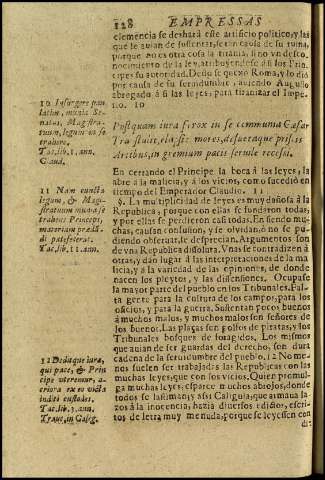 128 EMPRESSAS
clemencia se deshará este artificio politico, y las
que le auian de sustentar, seràn causa de su ruina,
porque no es otra cosa la tirania, sino vn desco-
nocimiento de la ley, atribuyendose à si los Prin-
cipes su autoridad. Desto se quexò Roma, y lo diò
por causa de su seruidumbre, auiendo Augusto
abrogado à si las leyes, para tiranizar el Impe-
rio. 10
10 Insurgere pau-
latim, munia Se-
natus, Magistra-
tuum, legum in se
trahere.
Tac. lib. 1. ann.
Postquam iura ferox in se communia Cæsar
Transtulit, elapsi mores, desuetaque priscis
Artibus, in gremium pacis seruile recessi.
Claud.
En cerrando el Principe la boca à las leyes, la
abre a la malicia, y à los vicios, como sucediò en
tiempo del Emperador Claudio. 11
11 Nam cuncta
legum, & Magi-
stratuum munia se
trahens Princeps,
materiam prædã-
di patefecerat.
Tac. lib. 11. ann.
§. La multiplicidad de leyes es muy dañosa à la
Republica; porque con ellas se fundaron todas,
y por ellas se perdieron casi todas. En siendo mu-
chas, causan confusion, y se olvidan, ò no se pu-
diendo obseruar, se desprecian. Argumentos son
de vna Republica disoluta. Vnas se contradizen à
otras, y dàn lugar à las interpretaciones de la ma
licia, y à la variedad de las opiniones, de donde
nacen los pleytos, y las dissensiones. Ocupase
la mayor parte del pueblo en los Tribunales. Fal-
ta gente para la cultura de los campos, para los
oficios, y para la guerra. Sustentan pocos buenos
à muchos malos, y muchos malos son señores de
los buenos. Las plaças son golfos de piratas, y los
Tribunales bosques de foragidos. Los mismos
que auian de ser guardas del derecho, son dura
cadena de la seruidumbre del pueblo. 12 No me-
nos suelen ser trabajadas las Republicas con las
muchas leyes, que con los vicios. Quien promul-
ga muchas leyes, esparce muchos abrojos, donde
todos se lastiman; y assi Caligula, que armaua la-
zos à la inocencia, hazia diuersos edictos, escri-
tos de letra muy menuda, porque se leyessen con
di-
12 Deditque iura,
quîs pace, & Prin-
cipe vteremur, a-
criora ex eo vincla
inditi custodes.
Tac. lib. 3. ann.